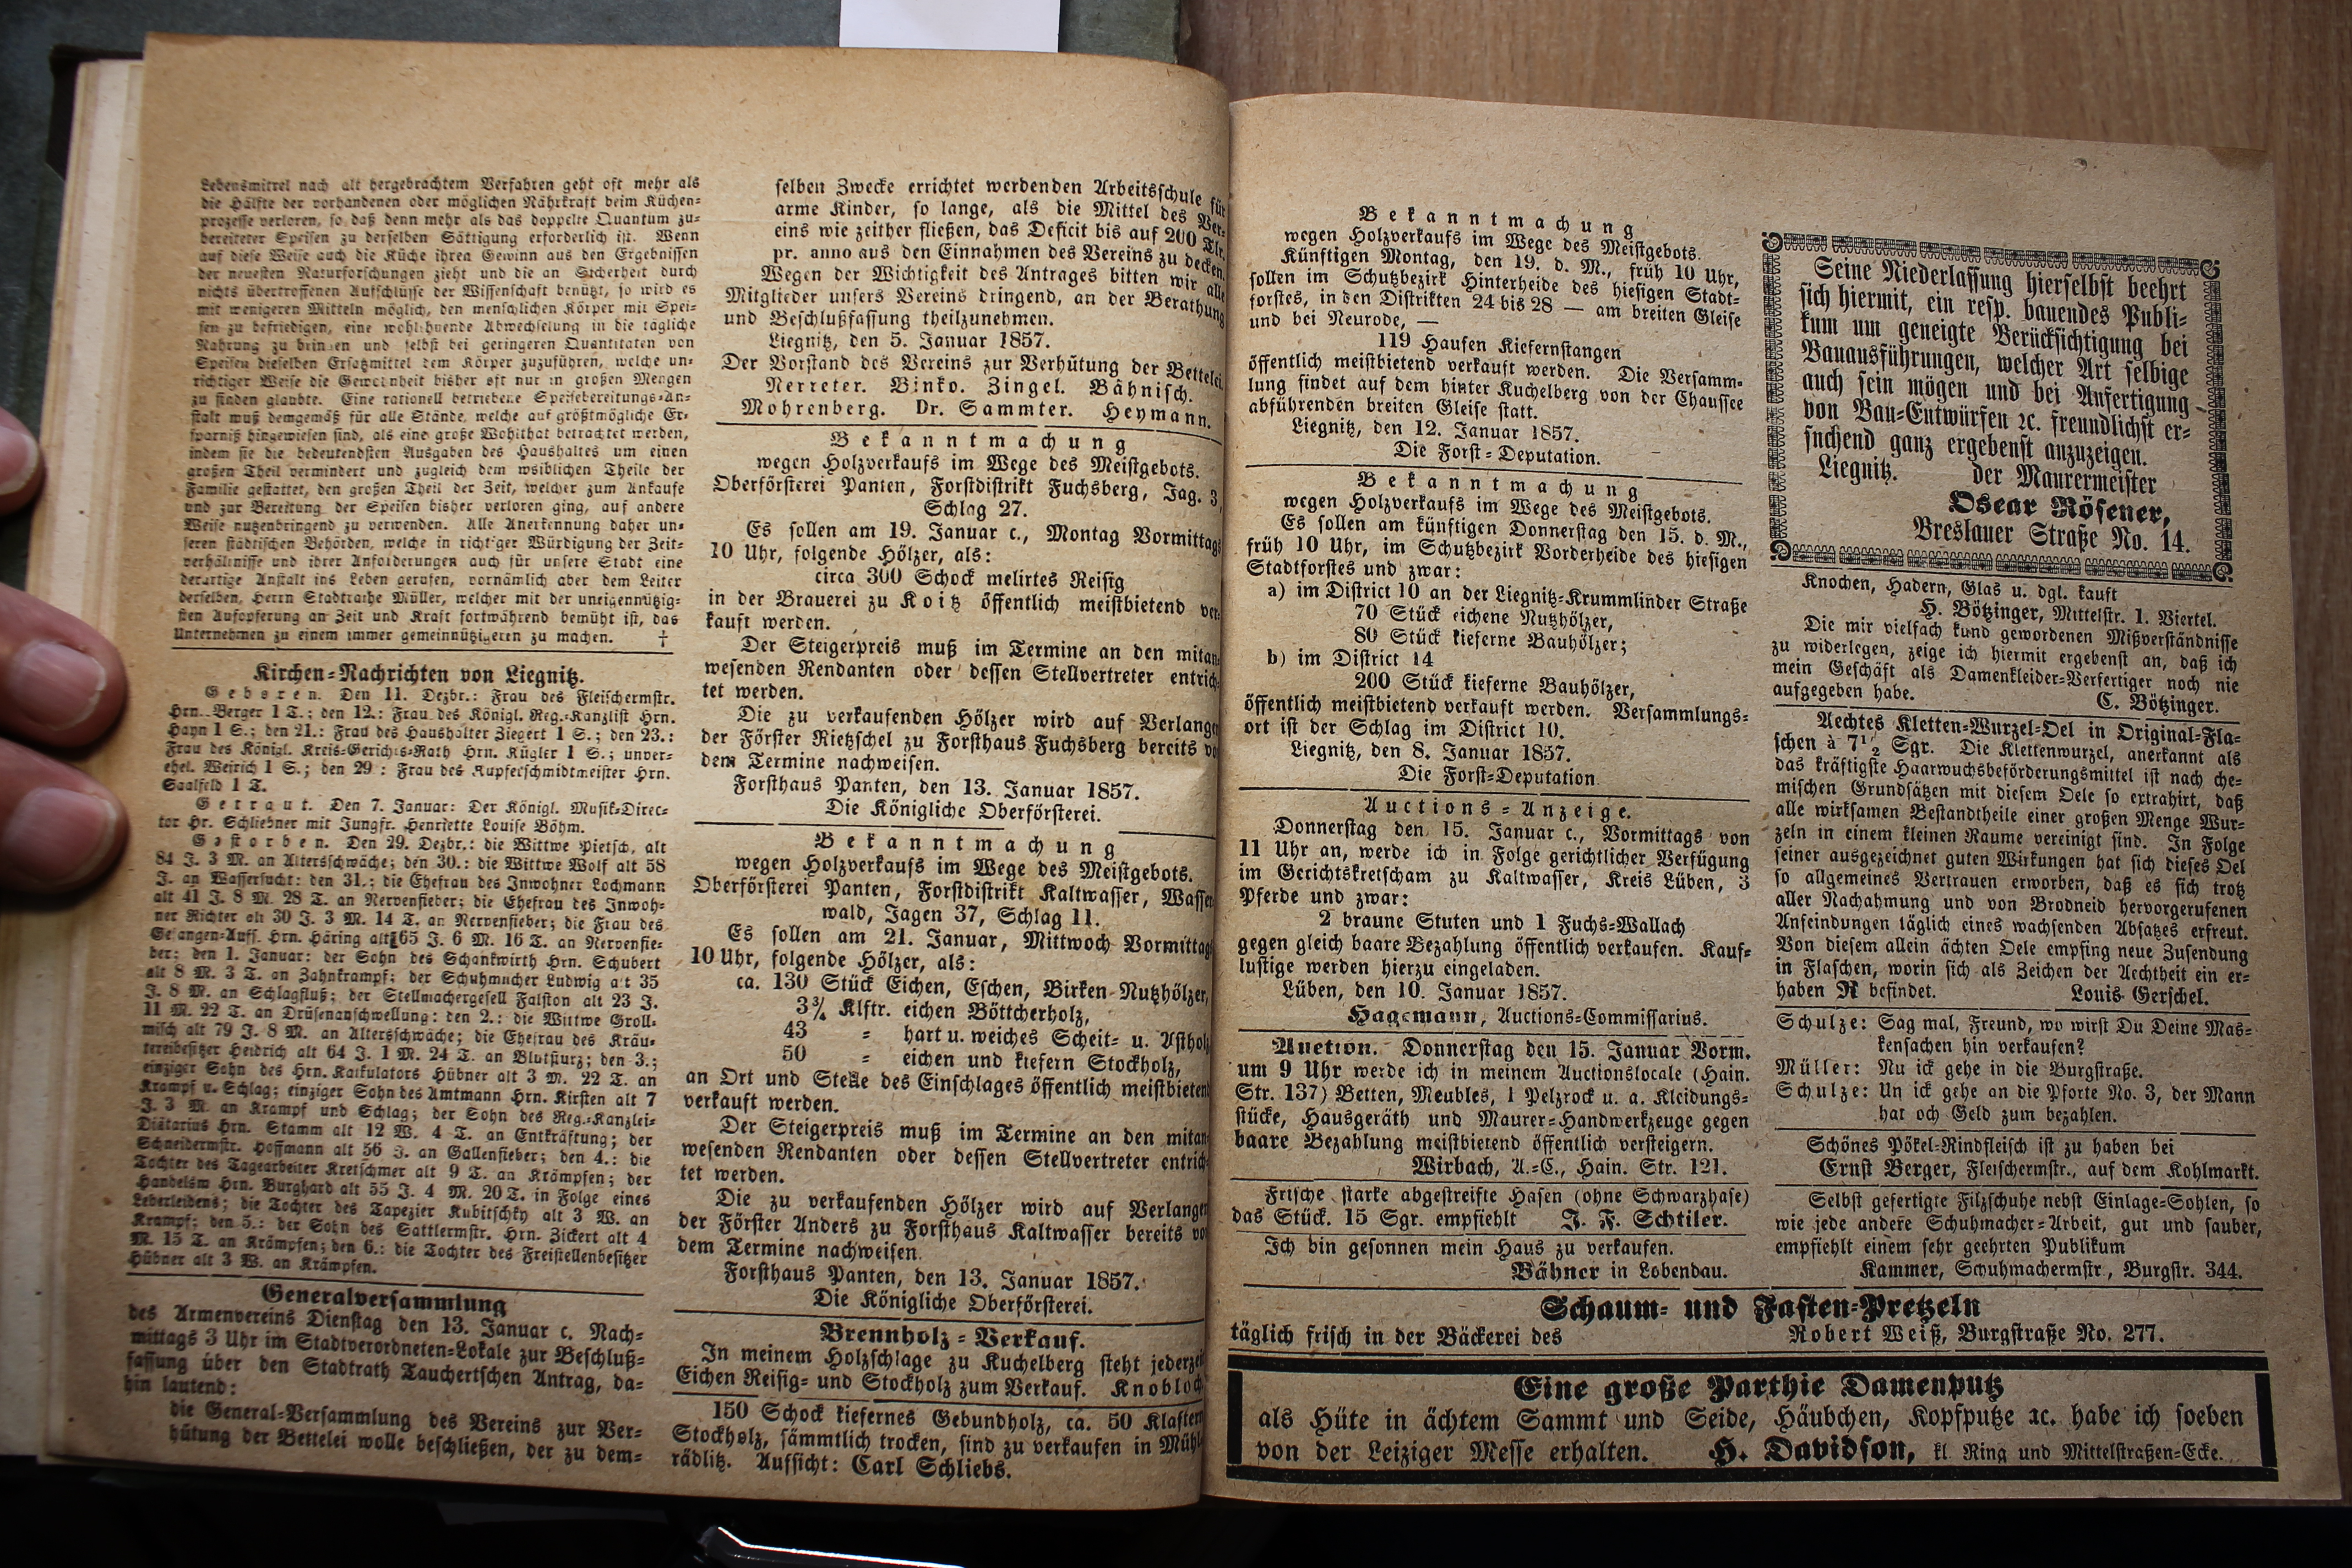 Lebensmittel nach alt hergebrachtem Verfahren geht oft mehr als
die Hälfte der vorhandenen oder möglichen Nährkraft beim Küchen-
prozesse verloren, so daß denn mehr als das doppelte Quantum zu-
bereiteter Speisen zu derselben Sättigung erforderlich ist. Wenn
auf diese Weise auch die Küche ihren Gewinn aus den Ergebnissen
der neuesten Naturforschungen zieht und die an Sicherheit durch
nichts übertroffenen Aufschlüsse der Wissenschaft benützt, so wird es
mit wenigeren Mitteln möglich, den menschlichen Körper mit Spei-
sen zu befriedigen, eine wohlthuende Abwechselung in die tägliche
Nahrung zu bringen und selbst bei geringeren Quantitäten von
Speisen dieselben Ersatzmittel dem Körper zuzuführen, welche un-
richtiger Weise die Gewohnheit bisher oft nur in großen Mengen
zu finden glaubte. Eine rationell betriebene Speisebereitungs-An-
stalt muß demgemäß für alle Stände, welche auf größtmögliche Er-
sparniß hingewiesen sind, als eine große Wohlthat betrachtet werden,
indem sie die bedeutendsten Ausgaben des Haushaltes um einen
großen Theil vermindert und zugleich dem weiblichen Theile der
Familie gestattet, den großen Theil der Zeit, welcher zum Ankaufe
und zur Bereitung der Speisen bisher verloren ging, auf andere
Weise nutzenbringend zu verwenden. Alle Anerkennung daher un-
seren städtischen Behörden, welche in richtiger Würdigung der Zeit-
verhältnisse und ihrer Anforderungen auch für unsere Stadt eine
derartige Anstalt ins Leben gerufen, vornämlich aber dem Leiter
derselben, Herrn Stadtrathe Müller, welcher mit der uneigennützig-
sten Aufopferung an Zeit und Kraft fortwährend bemüht ist, das
Unternehmen zu einem immer gemeinnützigeren zu machen. †
Kirchen-Nachrichten von Liegnitz.
Geboren. Den 11. Dezbr.: Frau des Fleischermstr.
Hrn. Berger 1 T.; den 12.: Frau des Königl. Reg.-Kanzlist Hrn.
Hayn 1 S.; den 21.: Frau des Haushalter Ziegert 1 S.; den 23.:
Frau des Königl. Kreis-Gerichts-Rath Hrn. Kügler 1 S.; unver-
ehel. Weirich 1 S.; den 29: Frau des Kupferschmidtmeister Hrn.
Saalfeld 1 T.
Getraut. Den 7. Januar: Der Königl. Musik-Direc-
tor Hr. Schließner mit Jungfr. Henriette Louise Böhm.
Gestorben. Den 29. Dezbr.: die Wittwe Pietsch, alt
84 J. 3 M. an Altersschwäche; den 30.: die Wittwe Wolf alt 58
J. an Wassersucht: den 31.: die Ehefrau des Inwohner Lochmann
alt 41 J. 8 M. 28 T. an Nervenfieber; die Ehefrau des Inwoh-
ner Richter alt 30 J. 3 M. 14 T. an Nervenfieber; die Frau des
Gefangen-Auff. Hrn. Häring alt 65 J. 6 M. 16 T. an Nervenfie-
ber; den 1. Januar: der Sohn des Schankwirth Hrn. Schubert
alt 8 M. 3 T. an Zahnkrampf; der Schuhmacher Ludwig alt 35
J. 8 M. an Schlagfluß; der Stellmachergesell Falston alt 23 J.
11 M. 22 T. an Drüsenanschwellung: den 2.: die Wittwe Groll-
misch alt 79 J. 8 M. an Altersschwäche; die Ehefrau des Kräu-
tereibesitzer Heidrich alt 64 J. 1 M. 24 T. an Blutsturz; den 3.;
einziger Sohn des Hrn. Kalkulators Hübner alt 3 M. 22 T. an
Krampf u. Schlag; einziger Sohn des Amtmann Hrn. Kirsten alt 7
J. 3 M. an Krampf und Schlag; der Sohn des Reg.-Kanzlei-
Diätarius Hrn. Stamm alt 12 W. 4 T. an Entkräftung; der
Schneidermstr. Hoffmann alt 56 J. an Gallenfieber; den 4.: die
Tochter des Tagearbeiter Kretschmer alt 9 T. an Krämpfen; der
Handelsm Hrn. Burghard alt 55 J. 4 M. 20 T. in Folge eines
Leberleidens; die Tochter des Tapezier Kubitschky alt 3 W. an
Krampf; den 5.: der Sohn des Sattlermstr. Hrn. Zickert alt 4
M. 15 T. an Krämpfen; den 6.: die Tochter des Freistellenbesitzer
Hübner alt 3 W. an Krämpfen.
Generalversammlung
des Armenvereins Dienstag den 13. Januar c. Nach-
mittags 3 Uhr im Stadtverordneten-Lokale zur Beschluß-
fassung über den Stadtrath Tauchertschen Antrag, da-
hin lautend:
die General-Versammlung des Vereins zur Ver-
hütung der Bettelei wolle beschließen, der zu dem-
selben Zwecke errichtet werdenden Arbeitsschule für
arme Kinder, so lange, als die Mittel des Ver-
eins wie zeither fließen, das Deficit bis auf 200 Tlr.
pr. anno aus den Einnahmen des Vereins zu decken.
Wegen der Wichtigkeit des Antrages bitten wir alle
Mitglieder unsers Vereins dringend, an der Berathung
und Beschlußfassung theilzunehmen.
Liegnitz, den 5. Januar 1857.
Der Vorstand des Vereins zur Verhütung der Bettelei.
Nerreter. Binko. Zingel. Bähnisch.
Mohrenberg. Dr. Sammter. Heymann.
Bekanntmachung
wegen Holzverkaufs im Wege des Meistgebots.
Oberförsterei Panten, Forstdistrikt Fuchsberg, Jag. 3,
Schlag 27.
Es sollen am 19. Januar c., Montag Vormittags
10 Uhr, folgende Hölzer, als:
circa 300 Schock melirtes Reisig
in der Brauerei zu Koitz öffentlich meistbietend ver-
kauft werden.
Der Steigerpreis muß im Termine an den mitan-
wesenden Rendanten oder dessen Stellvertreter entrich-
tet werden.
Die zu verkaufenden Hölzer wird auf Verlangen
der Förster Rietzschel zu Forsthaus Fuchsberg bereits vor
dem Termine nachweisen.
Forsthaus Panten, den 13. Januar 1857.
Die Königliche Oberförsterei.
Bekanntmachung
wegen Holzverkaufs im Wege des Meistgebots.
Oberförsterei Panten, Forstdistrikt Kaltwasser, Wasser-
wald, Jagen 37, Schlag 11.
Es sollen am 21. Januar, Mittwoch Vormittag
10 Uhr, folgende Hölzer, als:
ca. 130 Stück Eichen, Eschen, Birken-Nutzhölzer,
3¾ Klftr. eichen Böttcherholz,
43 = hart u. weiches Scheit- u. Astholz
50 = eichen und kiefern Stockholz,
an Ort und Stelle des Einschlages öffentlich meistbietend
verkauft werden.
Der Steigerpreis muß im Termine an den mitan-
wesenden Rendanten oder dessen Stellvertreter entrich-
tet werden.
Die zu verkaufenden Hölzer wird auf Verlangen
der Förster Anders zu Forsthaus Kaltwasser bereits vor
dem Termine nachweisen.
Forsthaus Panten, den 13. Januar 1857.
Die Königliche Oberförsterei.
Brennholz-Verkauf.
In meinem Holzschlage zu Kuchelberg steht jederzeit
Eichen Reisig- und Stockholz zum Verkauf. Knobloch
150 Schock kiefernes Gebundholz, ca. 50 Klaftern
Stockholz, sämmtlich trocken, sind zu verkaufen in Mühl-
rädlitz. Aufsicht: Carl Schliebs.
Bekanntmachung
wegen Holzverkaufs im Wege des Meistgebots.
Künftigen Montag, den 19. d. M., früh 10 Uhr,
sollen im Schutzbezirk Hinterheide des hiesigen Stadt-
forstes, in den Distrikten 24 bis 28 — am breiten Gleise
und bei Neurode, —
119 Haufen Kiefernstangen
öffentlich meistbietend verkauft werden. Die Versamm-
lung findet auf dem hinter Kuchelberg von der Chaussee
abführenden breiten Gleise statt.
Liegnitz, den 12. Januar 1857.
Die Forst-Deputation.
Bekanntmachung
wegen Holzverkaufs im Wege des Meistgebots.
Es sollen am künftigen Donnerstag den 15. d. M.,
früh 10 Uhr, im Schutzbezirk Vorderheide des hiesigen
Stadtforstes und zwar:
a) im District 10 an der Liegnitz-Krummlinder Straße
70 Stück eichene Nutzhölzer,
80 Stück kieferne Bauhölzer;
b) im District 14
200 Stück kieferne Bauhölzer,
öffentlich meistbietend verkauft werden. Versammlungs-
ort ist der Schlag im District 10.
Liegnitz, den 8. Januar 1857.
Die Forst-Deputation
Auctions-Anzeige.
Donnerstag den 15. Januar c., Vormittags von
11 Uhr an, werde ich in Folge gerichtlicher Verfügung
im Gerichtskretscham zu Kaltwasser, Kreis Lüben, 3
Pferde und zwar:
2 braune Stuten und 1 Fuchs-Wallach
gegen gleich baare Bezahlung öffentlich verkaufen. Kauf-
lustige werden hierzu eingeladen.
Lüben, den 10. Januar 1857.
Hagemann, Auctions-Commissarius.
Auction. Donnerstag den 15. Januar Vorm.
um 9 Uhr werde ich in meinem Auctionslocale (Hain.
Str. 137) Betten, Meubles, 1 Pelzrock u. a. Kleidungs-
stücke, Hausgeräth und Maurer-Handwerkzeuge gegen
baare Bezahlung meistbietend öffentlich versteigern.
Wirbach, A.-C., Hain. Str. 121.
Frische starke abgestreifte Hasen (ohne Schwarzhase)
das Stück. 15 Sgr. empfiehlt J. F. Schtiler.
Ich bin gesonnen mein Haus zu verkaufen.
Bähner in Lobendau.
Seine Niederlassung hierselbst beehrt
sich hiermit, ein resp. bauendes Publi-
kum um geneigte Berücksichtigung bei
Bauausführungen, welcher Art selbige
auch sein mögen und bei Anfertigung
von Bau-Entwürfen ꝛc. freundlichst er-
suchend ganz ergebenst anzuzeigen.
Liegnitz. der Maurermeister
Oscar Rösener,
Breslauer Straße No. 14.
Knochen, Hadern, Glas u. dgl. kauft
H. Bötzinger, Mittelstr. 1. Viertel.
Die mir vielfach kund gewordenen Mißverständnisse
zu widerlegen, zeige ich hiermit ergebenst an, daß ich
mein Geschäft als Damenkleider-Verfertiger noch nie
aufgegeben habe. C. Bötzinger.
Aechtes Kletten-Wurzel-Oel in Original-Fla-
schen à 7½ Sgr. Die Klettenwurzel, anerkannt als
das kräftigste Haarwuchsbeförderungsmittel ist nach che-
mischen Grundsätzen mit diesem Oele so extrahirt, daß
alle wirksamen Bestandtheile einer großen Menge Wur-
zeln in einem kleinen Raume vereinigt sind. In Folge
seiner ausgezeichnet guten Wirkungen hat sich dieses Oel
so allgemeines Vertrauen erworben, daß es sich trotz
aller Nachahmung und von Brodneid hervorgerufenen
Anfeindungen täglich eines wachsenden Absatzes erfreut.
Von diesem allein ächten Oele empfing neue Zusendung
in Flaschen, worin sich als Zeichen der Aechtheit ein er-
haben R befindet. Louis Gerschel.
Schulze: Sag mal, Freund, wo wirst Du Deine Mas-
kensachen hin verkaufen?
Müller: Nu ick gehe in die Burgstraße.
Schulze: Un ick gehe an die Pforte No. 3, der Mann
hat och Geld zum bezahlen.
Schönes Pökel-Rindfleisch ist zu haben bei
Ernst Berger, Fleischermstr., auf dem Kohlmarkt.
Selbst gefertigte Filzschuhe nebst Einlage-Sohlen, so
wie jede andere Schuhmacher-Arbeit, gut und sauber,
empfiehlt einem sehr geehrten Publikum
Kammer, Schuhmachermstr., Burgstr. 344.
Schaum- und Fasten-Pretzeln
täglich frisch in der Bäckerei des Robert Weiß, Burgstraße No. 277.
Eine große Parthie Damenputz
als Hüte in ächtem Sammt und Seide, Häubchen, Kopfputze ꝛc. habe ich soeben
von der Leiziger Messe erhalten. H. Davidson, kl. Ring und Mittelstraßen-Ecke.